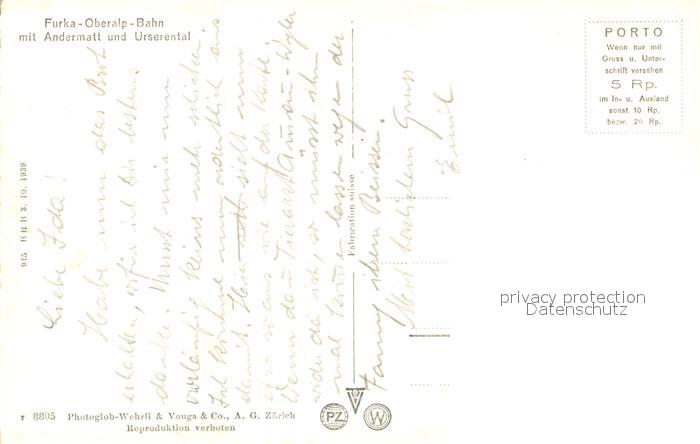 Furka-Oberalp-Bahn
mit Andermatt und Urserental
PORTO
Wenn nur mit
Gruss u. Unter-
schrift versehen
5 Rp.
im In- u. Ausland
sonst 10 Rp.
bezw. 20 Rp.
945 BRB 3. 10. 1939
Liebe Ida!
Habe nun das Brot
erhalten, wofür ich Dir bestens
danke. Musst mir nun
vorläufig keins mehr schicken.
Ich komme nun ordentlich aus
damit. Hier sieht man
so auf der Karte.
Wenn das Tierarzt
wieder da ist, so müsst ihr
mal kommen lassen wegen der
Fanny ihrem
Mit herzlichem Gruss
Emil
Fabrication suisse
privacy protection
Datenschutz
r 8805 Photoglob-Wehrli & Vouga & Co., A. G. Zürich
Reproduktion verboten
PZ
W